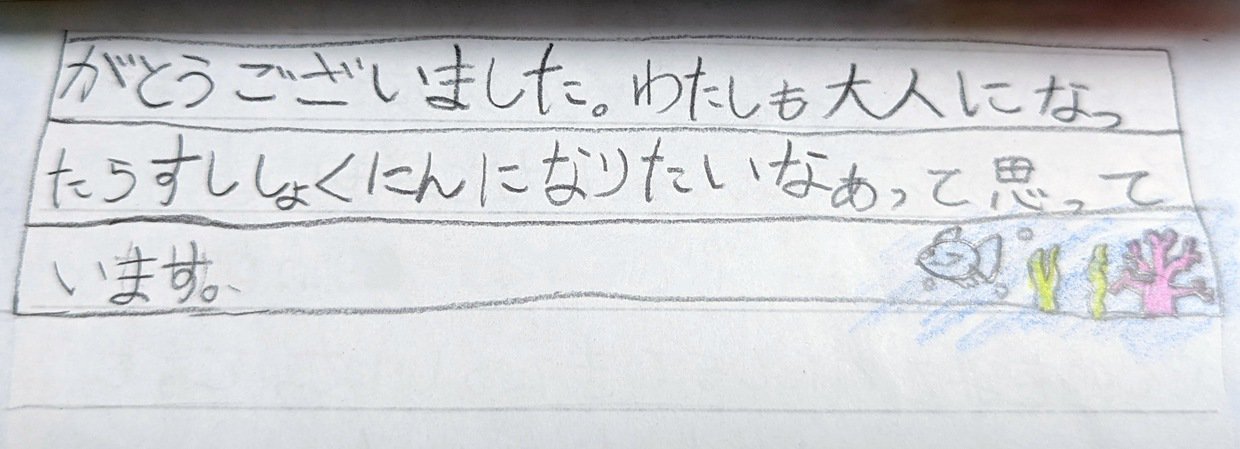 がとうございました。わたしも大人になっ
たらすししょくにんになりたいなあって思って
います。